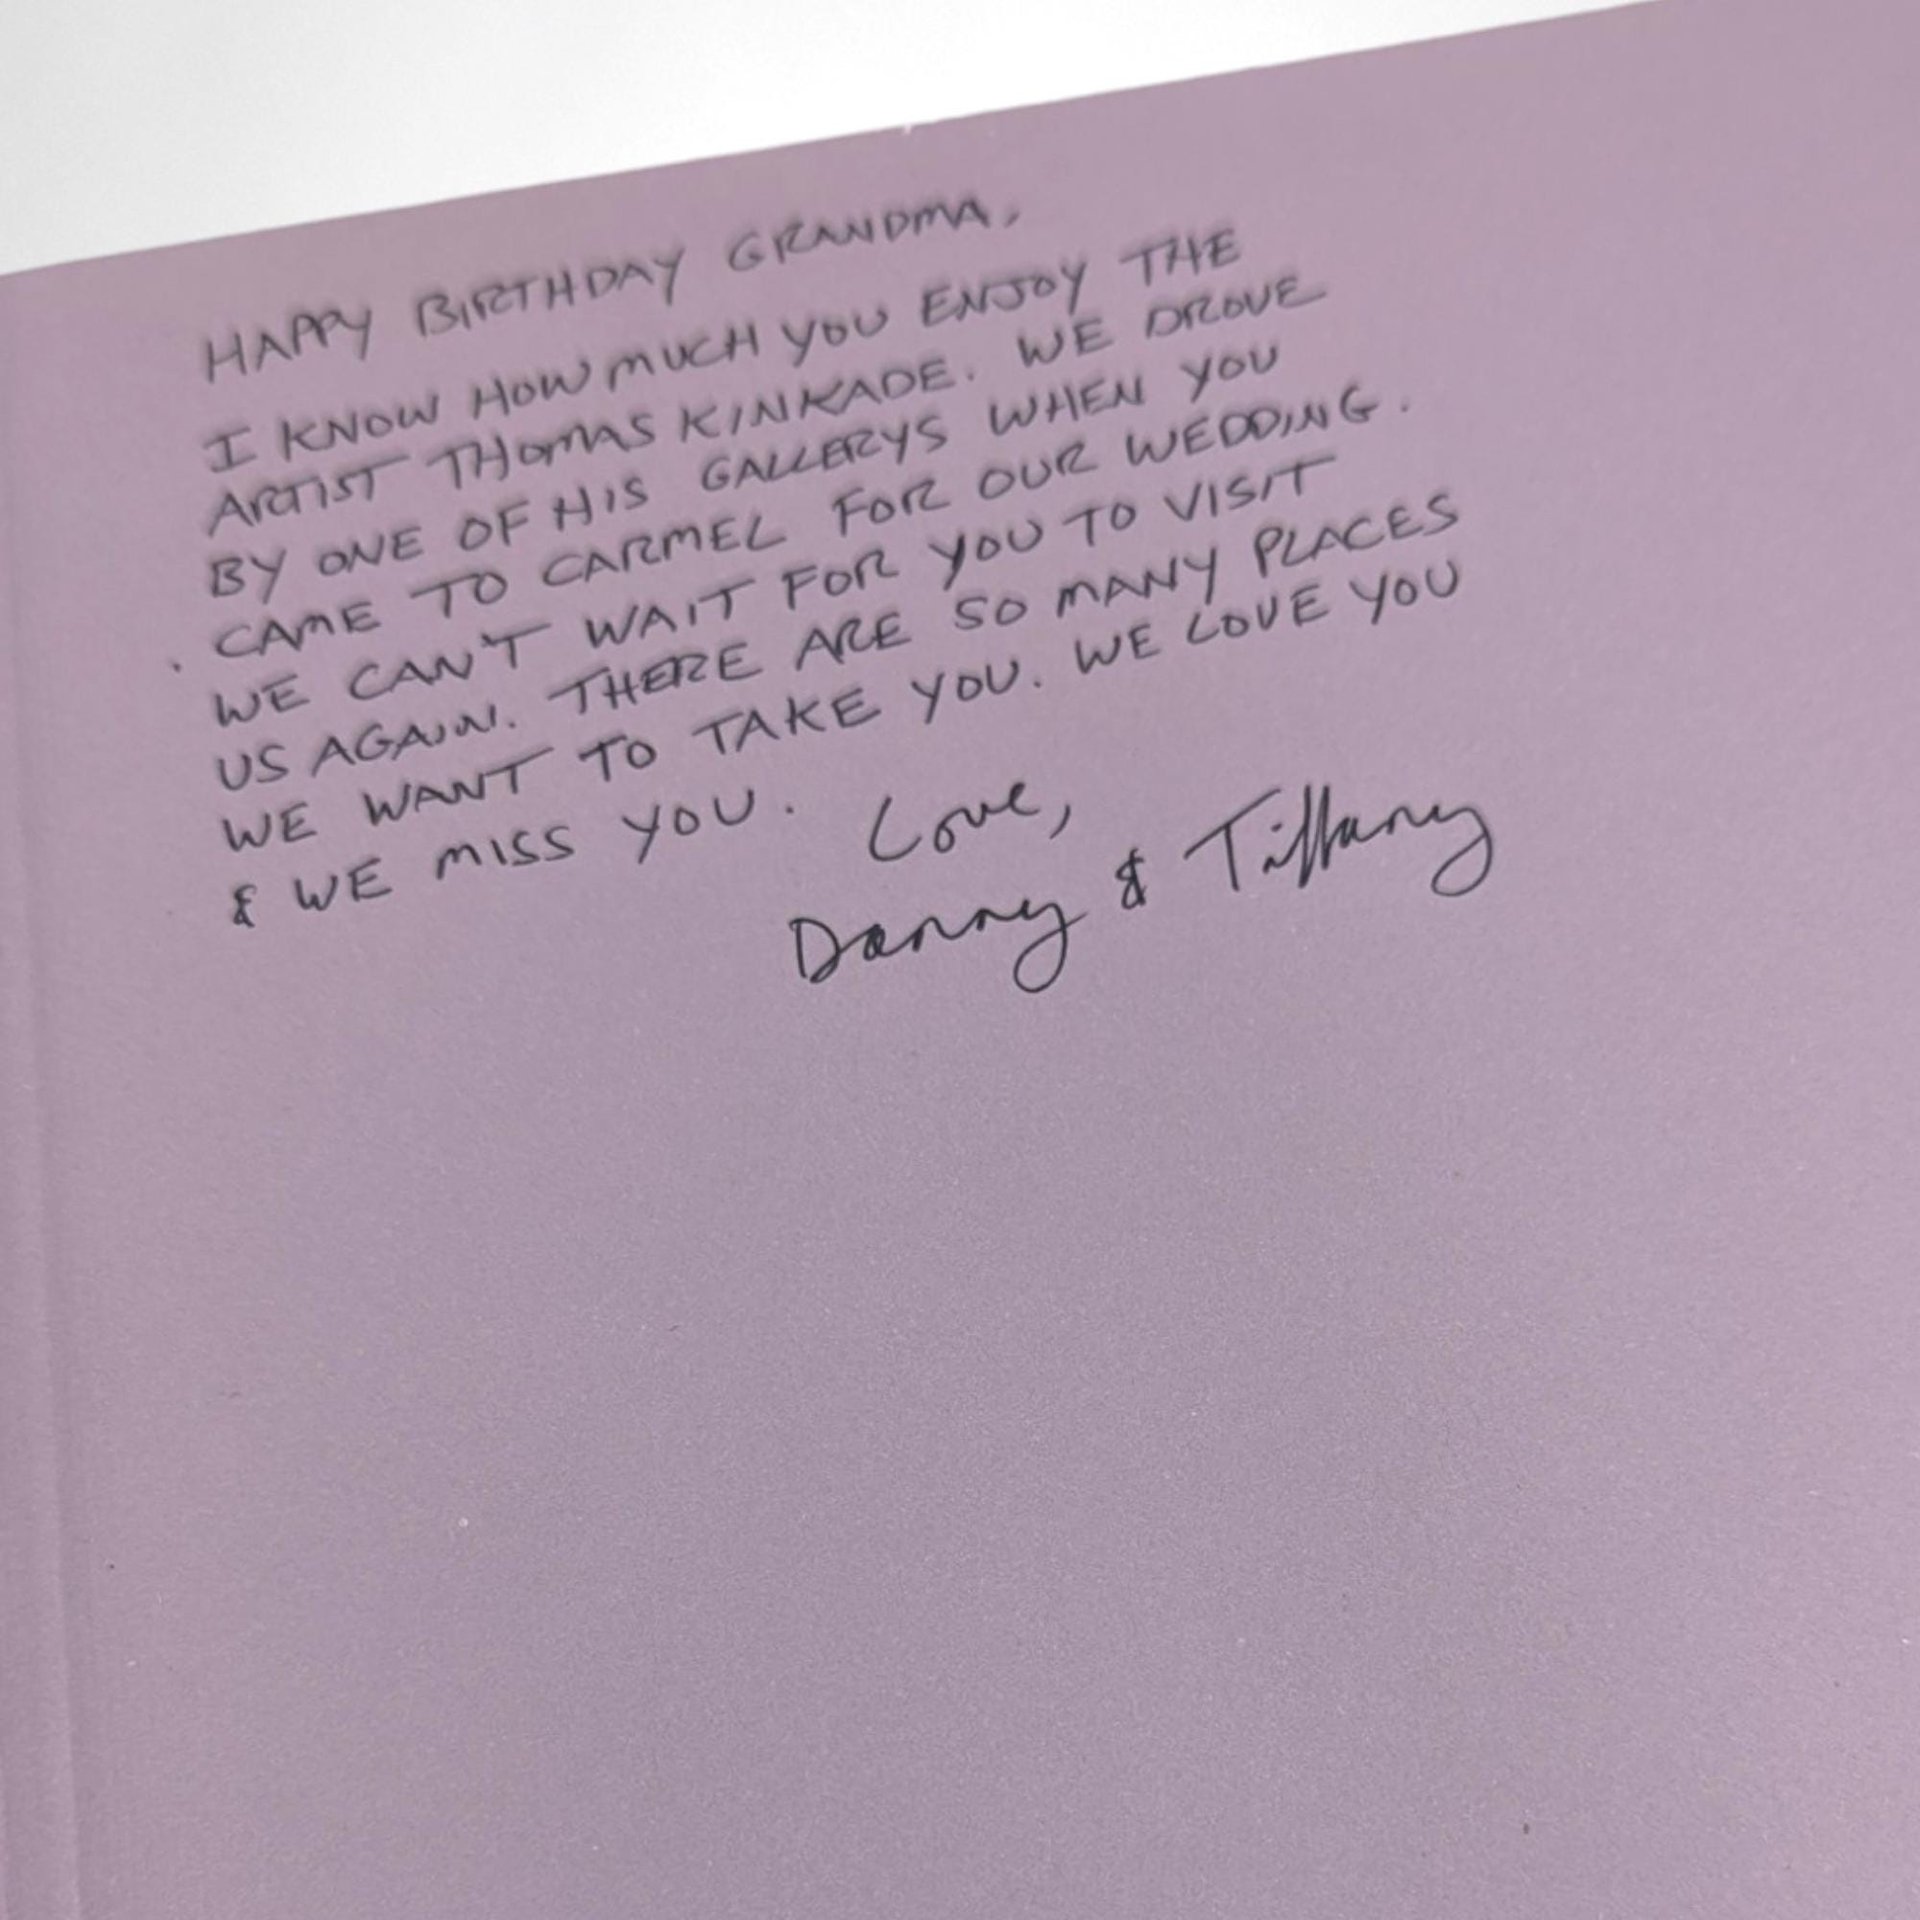 HAPPY BIRTHDAY GRANDMA,
I KNOW HOW MUCH YOU ENJOY THE
ARTIST THOMAS KINKADE. WE DROVE
BY ONE OF HIS GALLERYS WHEN YOU
CAME TO CARMEL FOR OUR WEDDING.
WE CAN'T WAIT FOR YOU TO VISIT
US AGAIN. THERE ARE SO MANY PLACES
WE WANT TO TAKE YOU. WE LOVE YOU
& WE MISS YOU.
Love,
Danny & Tiffany